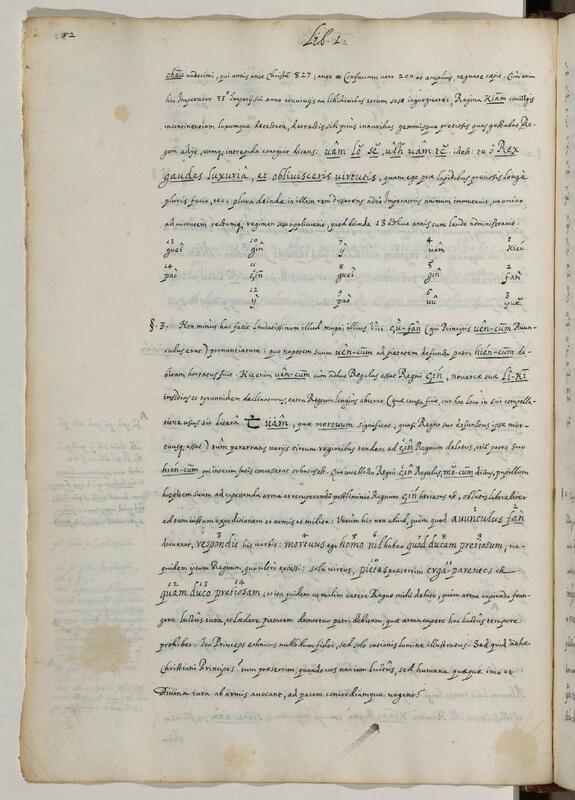 82
Lib. 1.
undecimi, qui annis ante Christū 827, ante Confucium vero 200 et amplius, regnare cœpit. Cùm enim
hic Imperator 33° Imperij sui anno convivijs ac libidinibus totum sese ingurgitaret, Regina Kiām
incontinentiam luxumque detestata, detractis sibi prius inauribus gemmisque pretiosis quas gestabat Re-
gem adijt, eumq; intrepidè coarguit dicens: idest: tu ô Rex
gaudes luxuria, et oblivisceris virtutis, quam ego præ lapidibus pretiosis longè
pluris facio, et c. plura deinde in illam rem disserens adeò Imperatoris animum immutavit, ut omnino
ad virtutem rectumq; regimen sese applicuerit, quod deinde 13 adhuc annis cum laude administravit.
13 10 7 4 1
gueî gin ÿ uâm kieú
14 11 8 5 2
paò çin gueî gin fán
12 9 6 3
ÿ paò vû yuĕ
§. 3. Non minus huc facit laudatissimum illud magni illius Viri çū-fán (qui Principis vên-cum Avun-
culus erat) pronuntiatum: quo nepotem suum vên-cūm ad pietatem defuncto patri hién-cum de-
bitam hortatus fuit. Hic enim vên-cūm cùm adhuc Regulus esset Regni çin, novercæ suæ Li-Ki
insidias et tyrannidem declinaturus, extra Regnum longius abierat (quæ causa fuit, cur hoc loco in sui compella-
tione usus sit literâ 亡 uâm, quæ mortuum significat; quasi Regno suo
esset) tum pererratis varijs circum regionibus tandem ad çin Regnum delatus, ibi patre suo
hién-cum qui interim fatis concesserat orbatus est. Quo intellecto Regni çîn Regulus, mŏ-cum dictus, pupillum
hospitem suum ad capessenda arma et recuperandū postliminio Regnum çin hortatus est, oblatis liberaliter
ad tam iustam expeditionem et armis et milite: Verùm hic non aliud, quàm quod avunculus fán
docuerat, respondit his verbis: mortuus ego homo nil habeo quod ducam pretiosum, ne-
quidem ipsum Regnum, quo ultro excessi: sola virtus, pietas præsertim ergà parentes est
quam duco pretiosam; et ita quidem ut malim carere Regno mihi debito, quàm arma capiendo fran-
gere luctûs iura, et lædere pietatem demortuo patri debitam, quæ arma capere hoc luctûs tempore
prohibet. Ita Princeps ethnicus nullo dum fidei, sed solo rationis lumine illustratus. Sed quid ad hæc
Christiani Principes? tum præsertim, quando eos non iam luctûs, sed humana quæque imo et
Divina iura ab armis avocant, ad pacem concordiamque urgent?